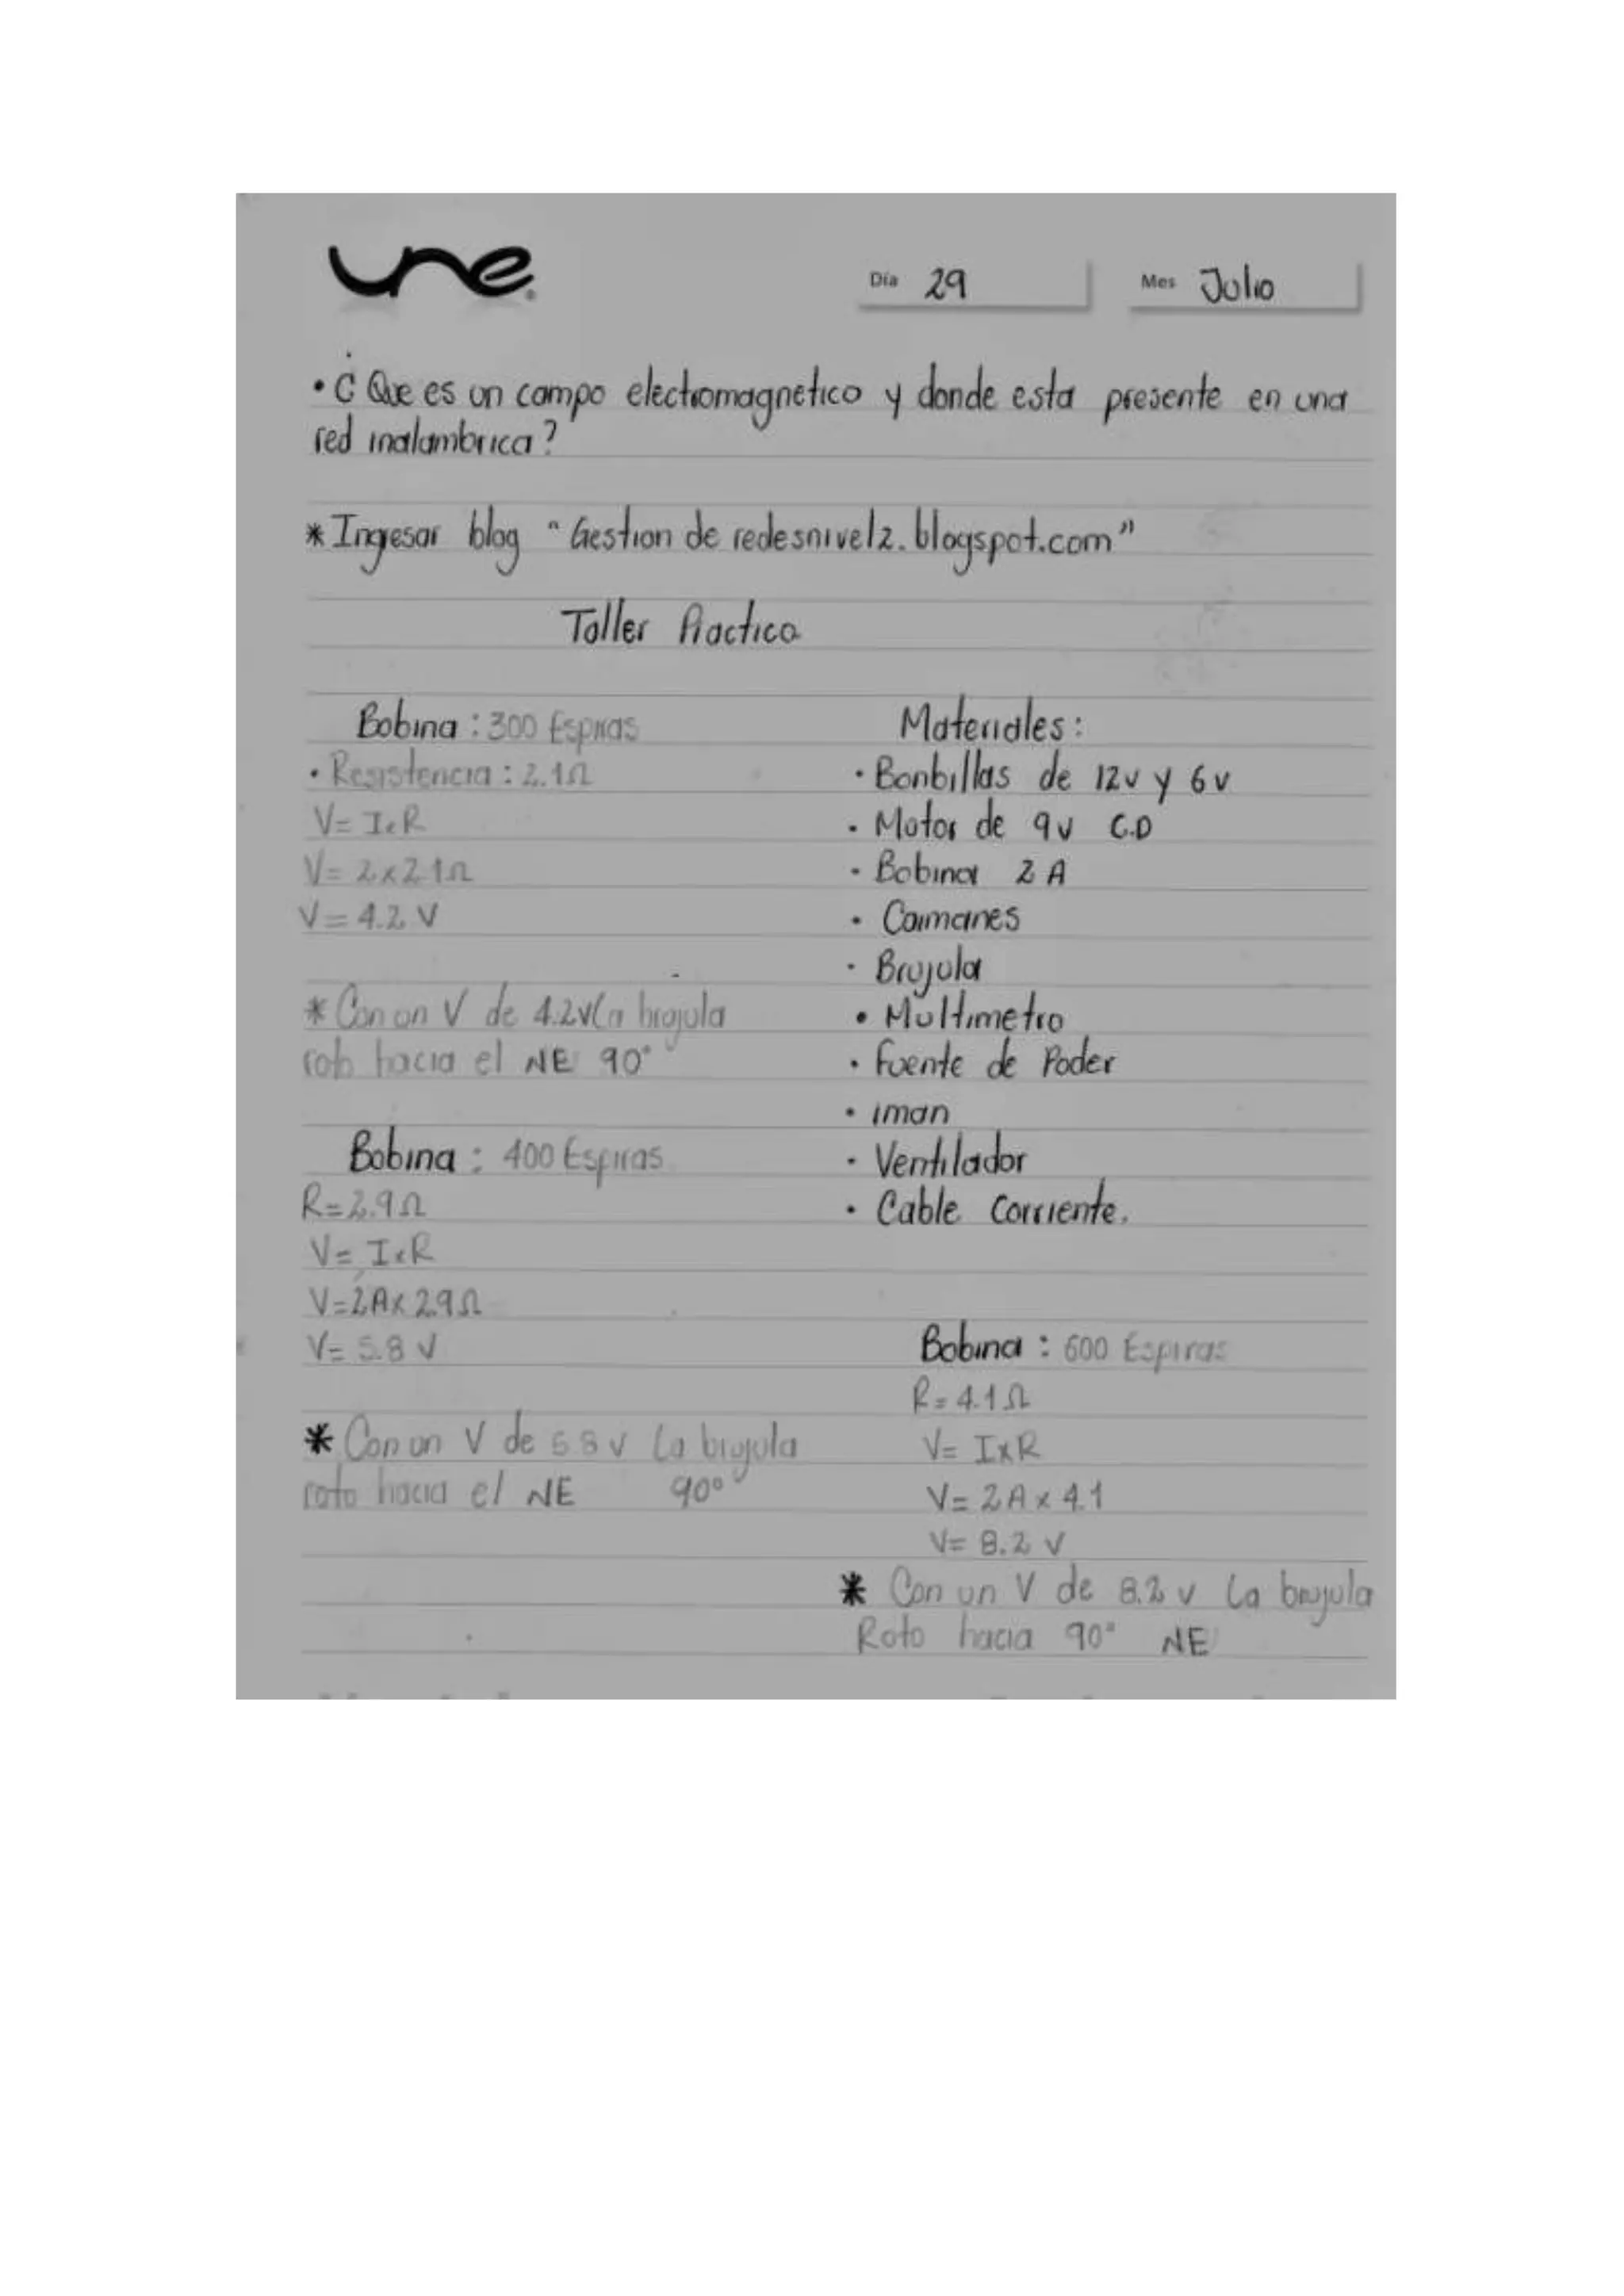 une
Día 29 Mes Julio
• ¿ Que es un campo electromagnetico y donde esta presente en una
red inalambrica?
* Ingresar blog "Gestion de redesnivel2.blogspot.com"
Taller Practico
Bobina : 300 Espiras
• Resistencia : 2.1Ω
V= IxR
V= 2x2.1Ω
V= 4.2 V
* Con un V de 4.2v La brujula
roto hacia el NE 90°
Bobina : 400 Espiras
R=2.9Ω
V= IxR
V=2Ax 2.9Ω
V= 5.8 V
* Con un V de 5.8 v La brujula
roto hacia el NE 90°
Materiales :
• Bonbillas de 12v y 6v
• Motor de 9v C.D
• Bobina 2 A
• Caimanes
• Brujula
• Multimetro
• Fuente de Poder
• iman
• Ventilador
• Cable Corriente.
Bobina : 600 Espiras
R= 4.1Ω
V= IxR
V= 2A x 4.1
V= 8.2 V
* Con un V de 8.2 v La brujula
Roto hacia 90° NE